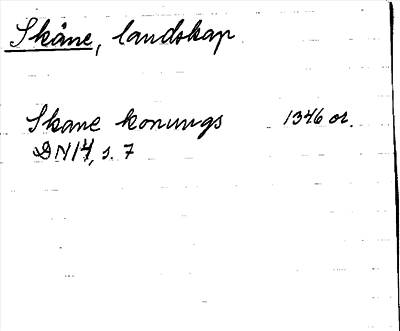 Skåne, landskap
Skane konungs 1346 or.
DN14, s. 7